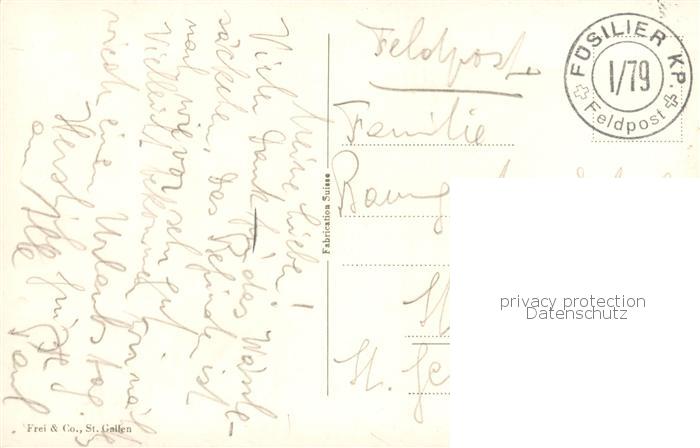 Meine Liebe!
Vielen Dank für das Wäsche-
säckchen, das Befinden ist
nach wie vor sehr gut.
Vielleicht bekomme ich mal
wieder einen Urlaubstag.
Herzlich grüsst
an Alle Paul
Feldpost
Familie
St.
St. Ge
FÜSILIER KP.
I/79
Feldpost
Fabrication Suisse
Frei & Co., St. Gallen
privacy protection
Datenschutz